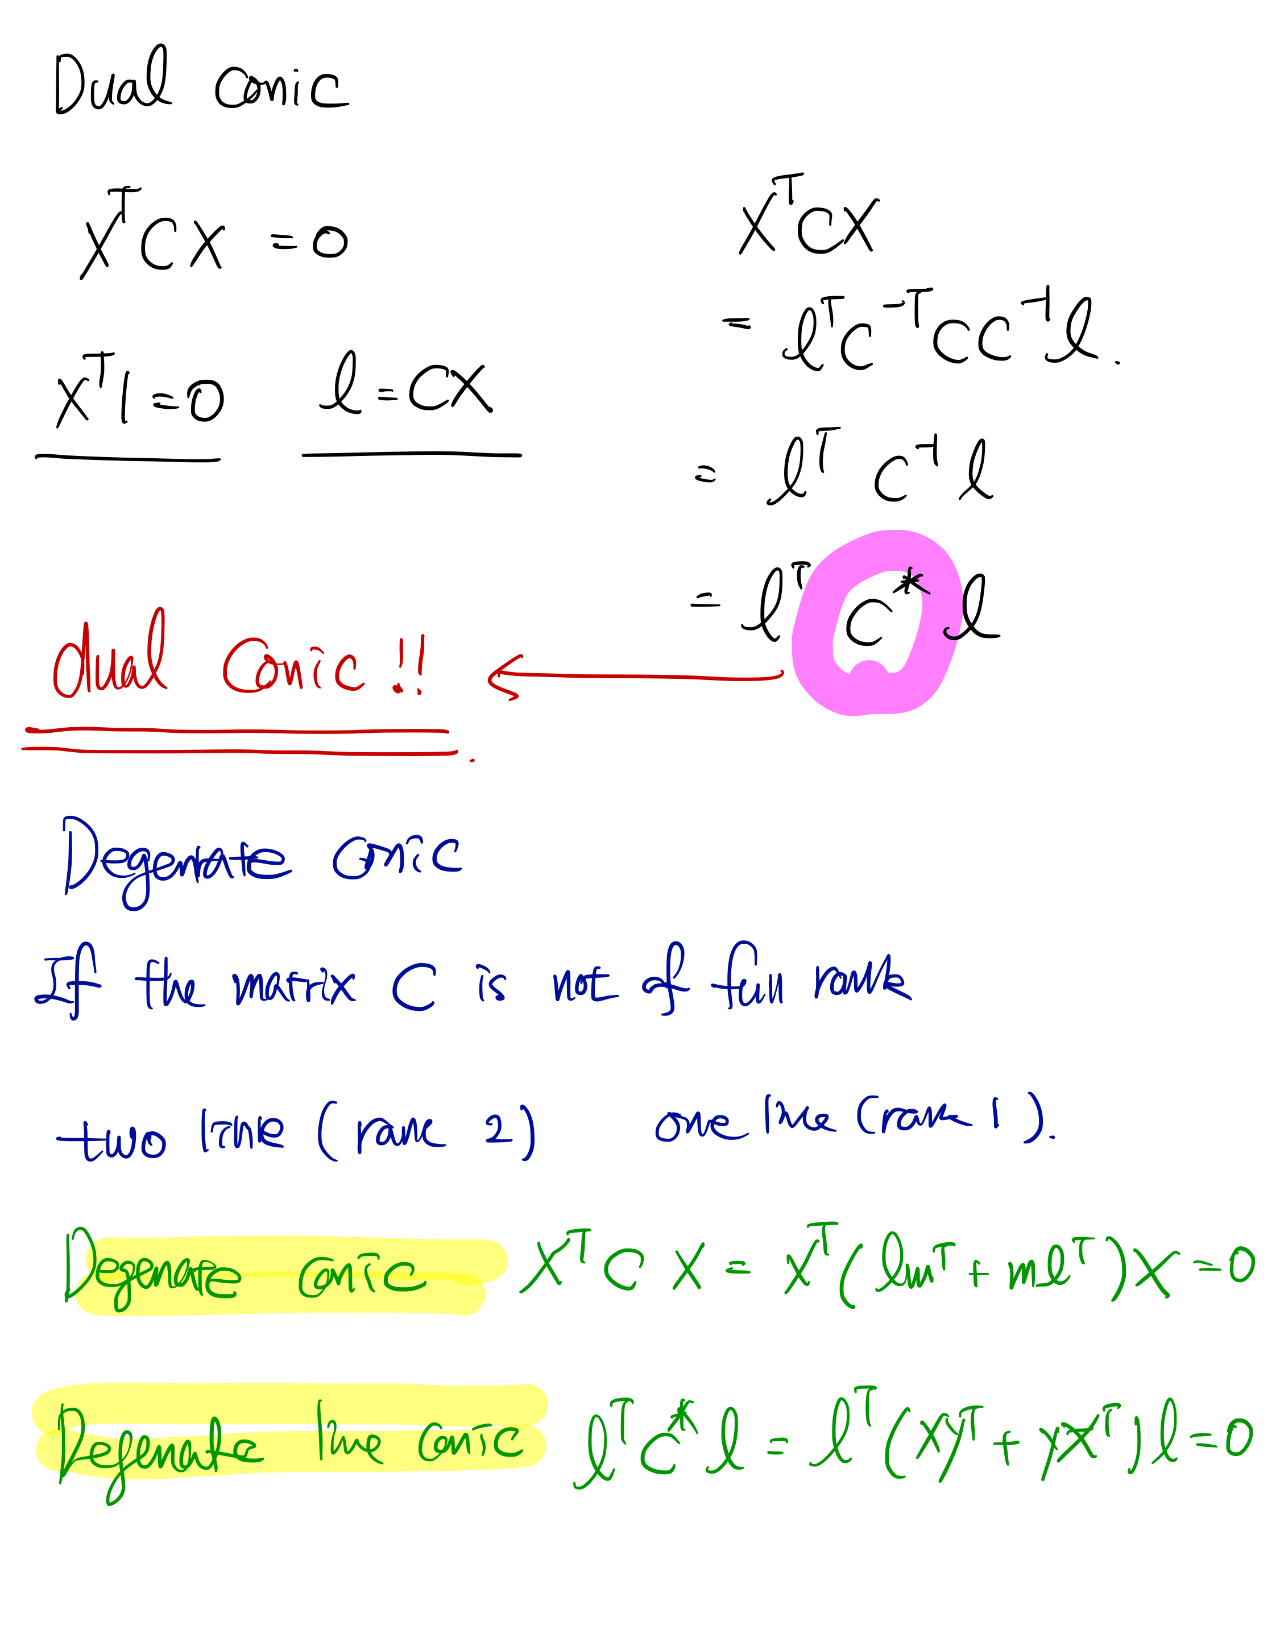 Dual conic
X^T C X = 0
x^T l = 0    l = CX
X^T C X
= l^T C^-T C C^-1 l.
= l^T C^-1 l
= l^T C^* l
dual conic!!
Degenrate conic
If the matrix C is not of full rank
two line (rank 2)    one line (rank 1).
Degenate conic    X^T C X = X^T (lm^T + ml^T) X = 0
Degenate line conic    l^T C^* l = l^T (xy^T + yx^T) l = 0